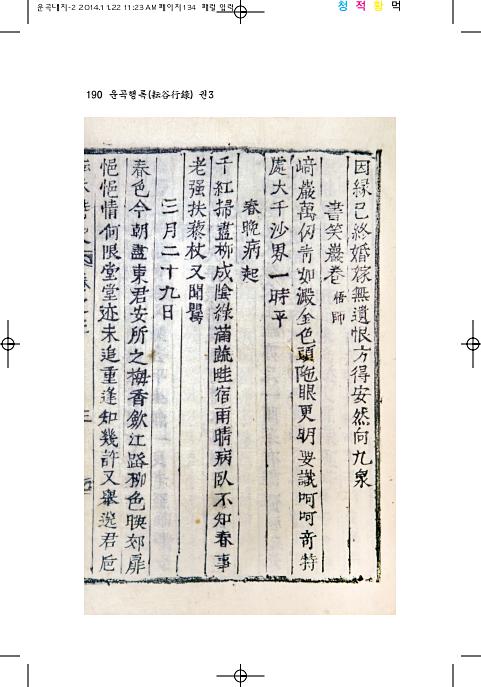 운곡내지-2 2014.11.22 11:23 AM 페이지134
청 적 황 먹
190 운곡행록(耘谷行錄) 권3
因緣已終婚嫁無遺恨方得安然向九泉
書笑巖卷 悟師
﨑巖萬仞靑如澱金色頭陁眼更明要識呵呵奇特
處大千沙界一時平
春晩病起
千紅掃盡柳成陰綠滿疏畦宿雨晴病臥不知春事
老强扶藜杖又聞鶯
三月二十九日
春色今朝盡東君安所之梅香歛江路柳色暎郊扉
悒悒情何限堂堂迹未追重逢知幾許又擧送君卮